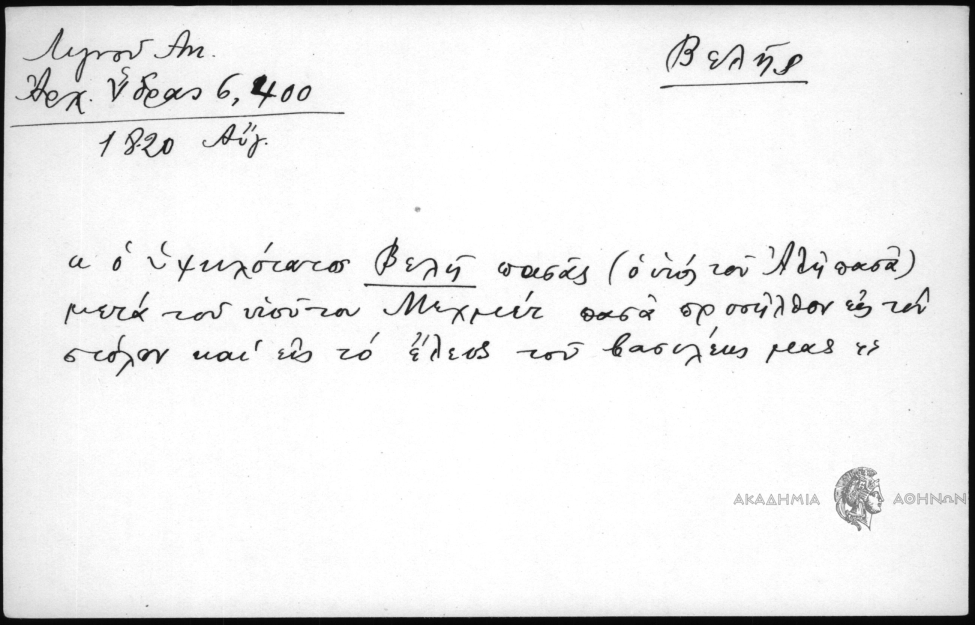 Λιγνοῦ Ἀν.
Ἀρχ. Ὕδρας 6, 400
1820 Αὔγ.
Βελῆς
« ὁ ὑψηλότατος Βελῆ πασάς (ὁ υἱός τοῦ Ἀλῆ πασᾶ)
μετά τοῦ υἱοῦ του Μεχμέτ πασᾶ προσῆλθον εἰς τόν
στόλον καί εἰς τό ἔλεος τοῦ βασιλέως μας »
ΑΚΑΔΗΜΙΑ ΑΘΗΝΩΝ